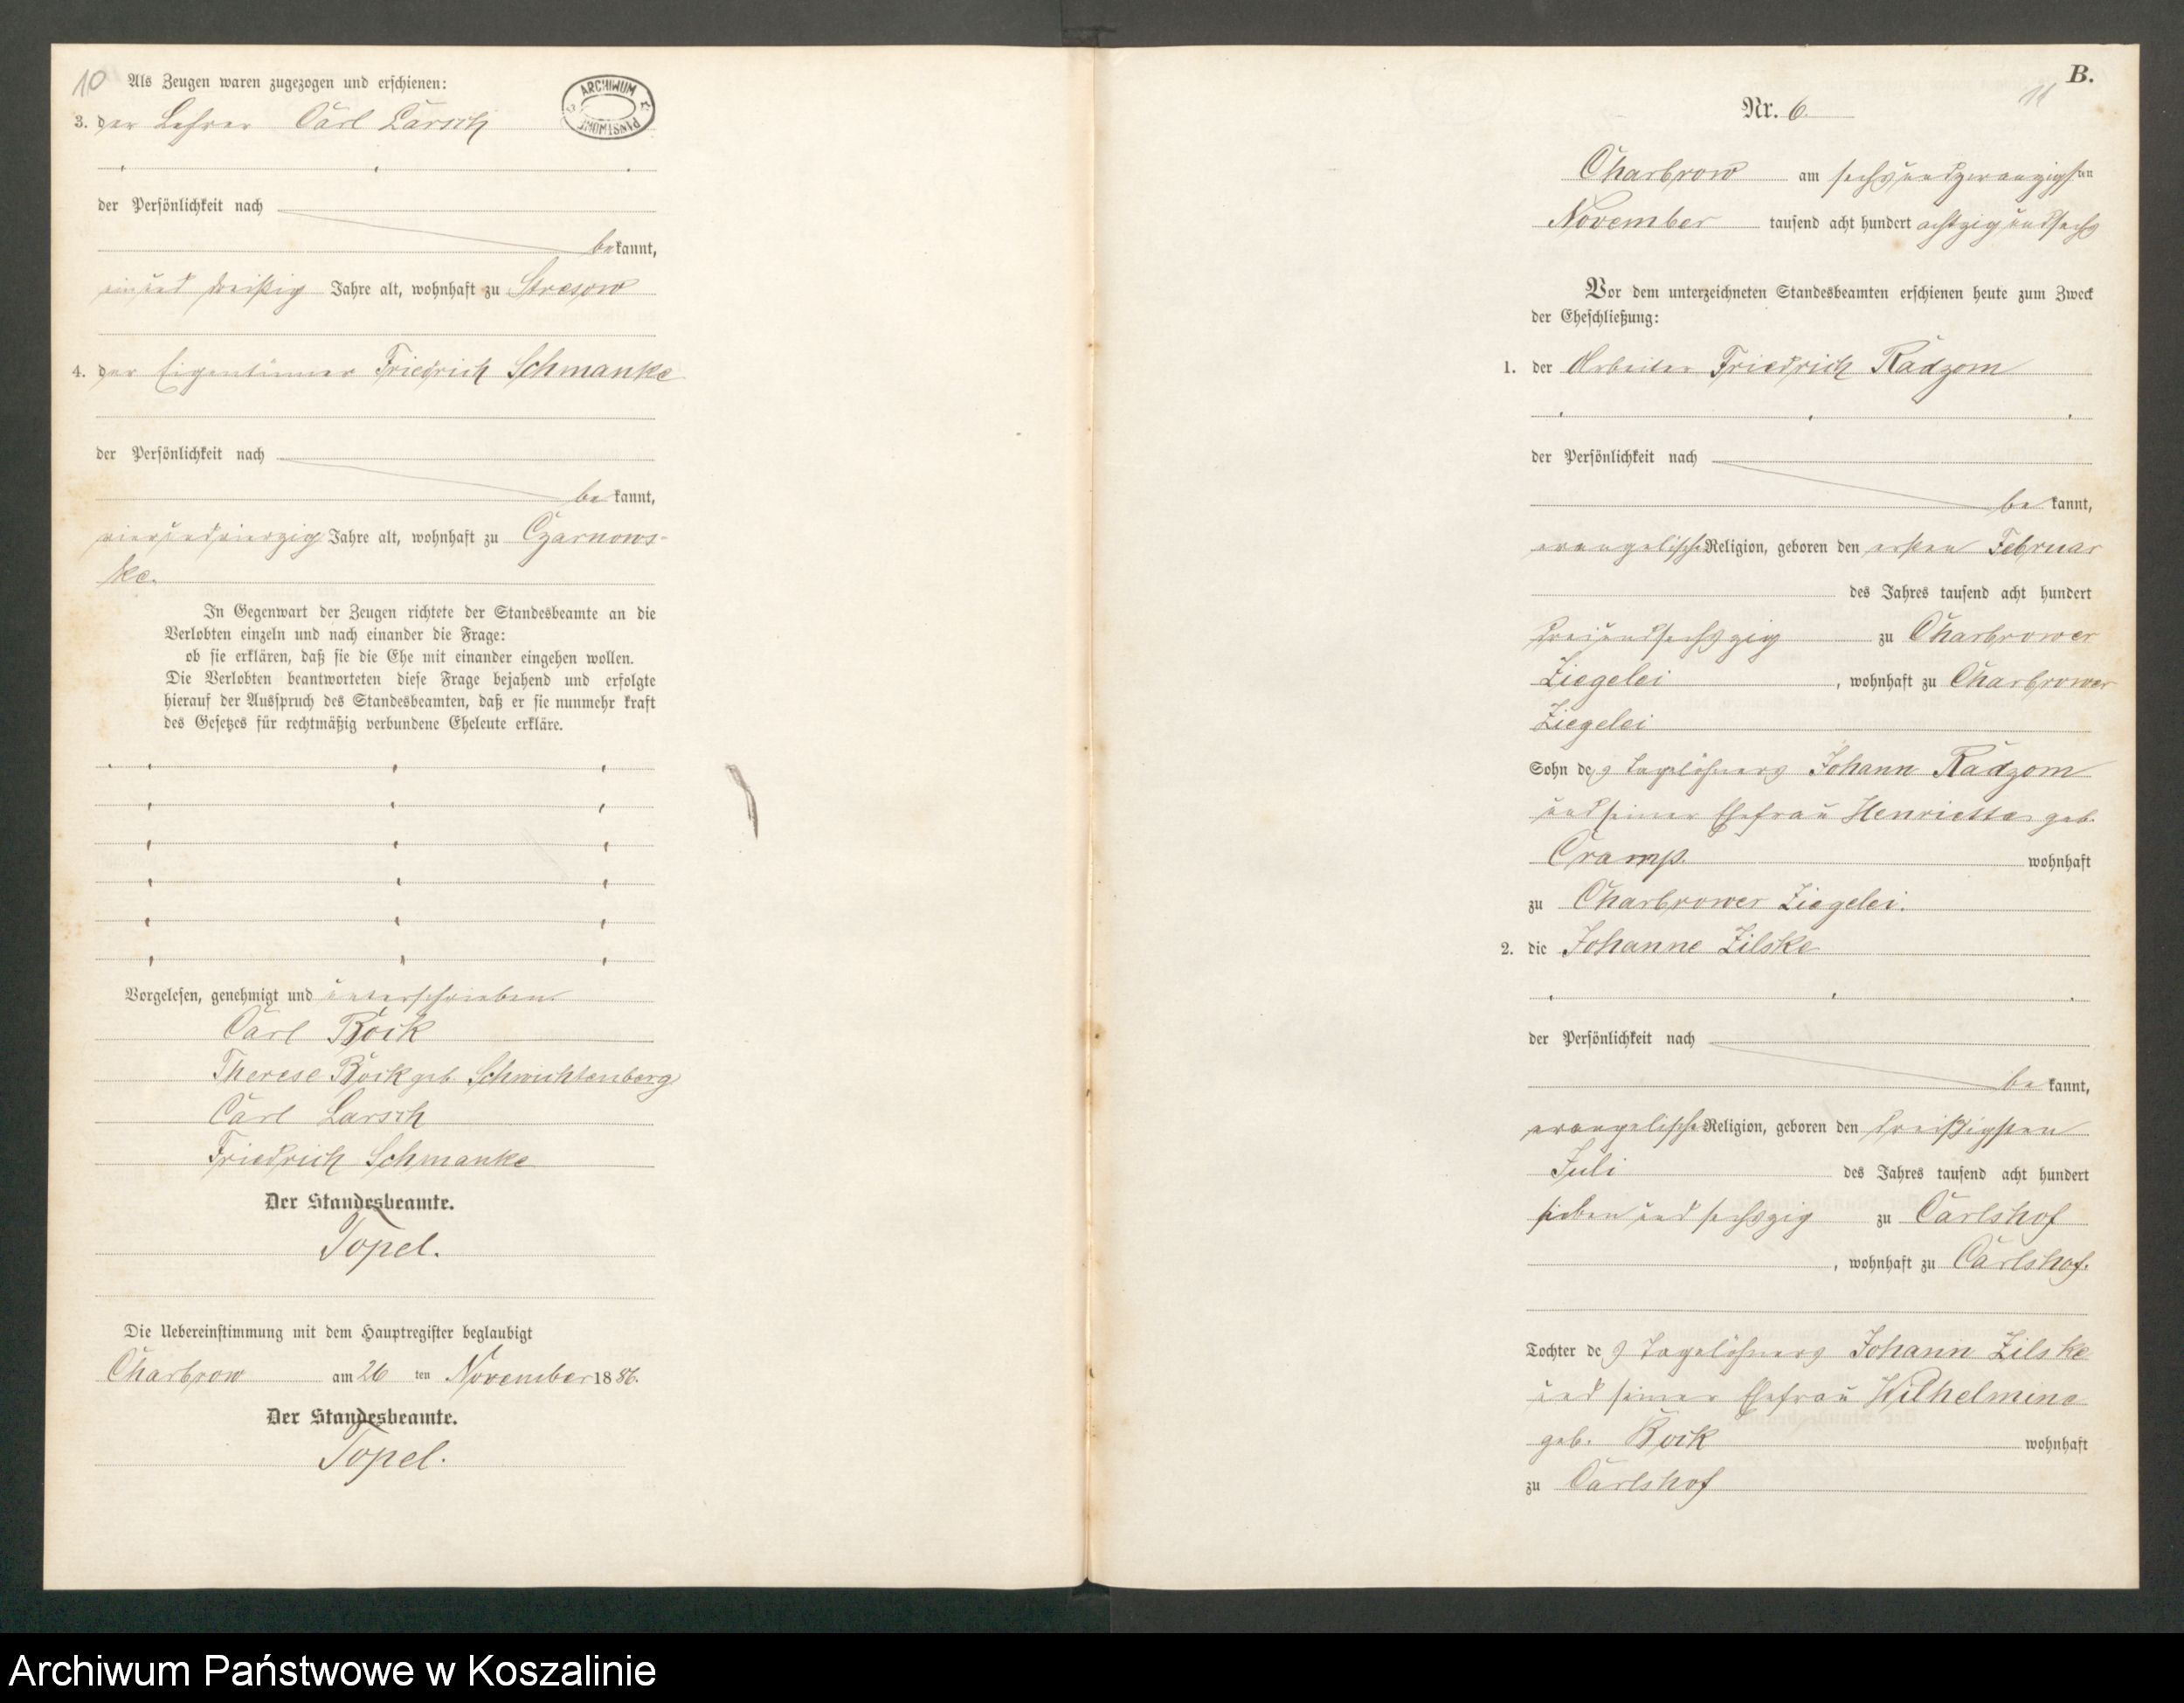 10
Als Zeugen waren zugezogen und erschienen:
ARCHIWUM PAŃSTWOWE
3. der Lehrer Carl Larsch
der Persönlichkeit nach
bekannt,
einunddreißig Jahre alt, wohnhaft zu Stresow
4. der Eigentümer Friedrich Schmanke
der Persönlichkeit nach
bekannt,
vierundvierzig Jahre alt, wohnhaft zu Czarnows-
ke.
In Gegenwart der Zeugen richtete der Standesbeamte an die
Verlobten einzeln und nach einander die Frage:
ob sie erklären, daß sie die Ehe mit einander eingehen wollen.
Die Verlobten beantworteten diese Frage bejahend und erfolgte
hierauf der Ausspruch des Standesbeamten, daß er sie nunmehr kraft
des Gesetzes für rechtmäßig verbundene Eheleute erkläre.
Vorgelesen, genehmigt und unterschrieben.
Carl Böck
Therese Böck geb. Schwichtenberg
Carl Larsch
Friedrich Schmanke
Der Standesbeamte.
Topel.
Die Uebereinstimmung mit dem Hauptregister beglaubigt
Charbrow am 26 ten November 1886.
Der Standesbeamte.
Topel.
B.
11
Nr. 6.
Charbrow am sechsundzwanzigsten
November tausend acht hundert achtzig und sechs
Vor dem unterzeichneten Standesbeamten erschienen heute zum Zweck
der Eheschließung:
1. der Arbeiter Friedrich Radzom
der Persönlichkeit nach
bekannt,
evangelischer Religion, geboren den ersten Februar
des Jahres tausend acht hundert
dreiundsechszig zu Charbrower
Ziegelei, wohnhaft zu Charbrower
Ziegelei
Sohn des Tagelöhners Johann Radzom
und seiner Ehefrau Henriette geb.
Cramp. wohnhaft
zu Charbrower Ziegelei.
2. die Johanne Zilske
der Persönlichkeit nach
bekannt,
evangelischer Religion, geboren den dreißigsten
Juli des Jahres tausend acht hundert
sieben und sechszig zu Carlshof
, wohnhaft zu Carlshof.
Tochter des Tagelöhners Johann Zilske
und seiner Ehefrau Wilhelmine
geb. Bock wohnhaft
zu Carlshof
Archiwum Państwowe w Koszalinie